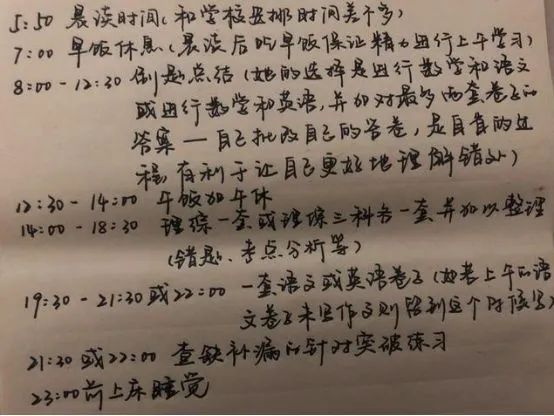 5:50 晨读时间(和学校安排时间差不多)
7:00 早饭休息(晨读后吃早饭保证精力进行上午学习)
8:00-12:30 刷题总结(她的选择是进行数学和语文
或进行数学和英语,并加对最多两套卷子的
答案—自己批改自己的答卷,是自省的过
程,有利于让自己更好地理解错处)
12:30-14:00 午饭加午休
14:00-18:30 理综一套或理综三科各一套并加以整理
(错题、考点分析等)
19:30-21:30或22:00 一套语文或英语卷子(如若上午的语
文卷子未写作文则留到这个时候写)
21:30 或22:00 查缺补漏的针对突破练习
23:00前上床睡觉